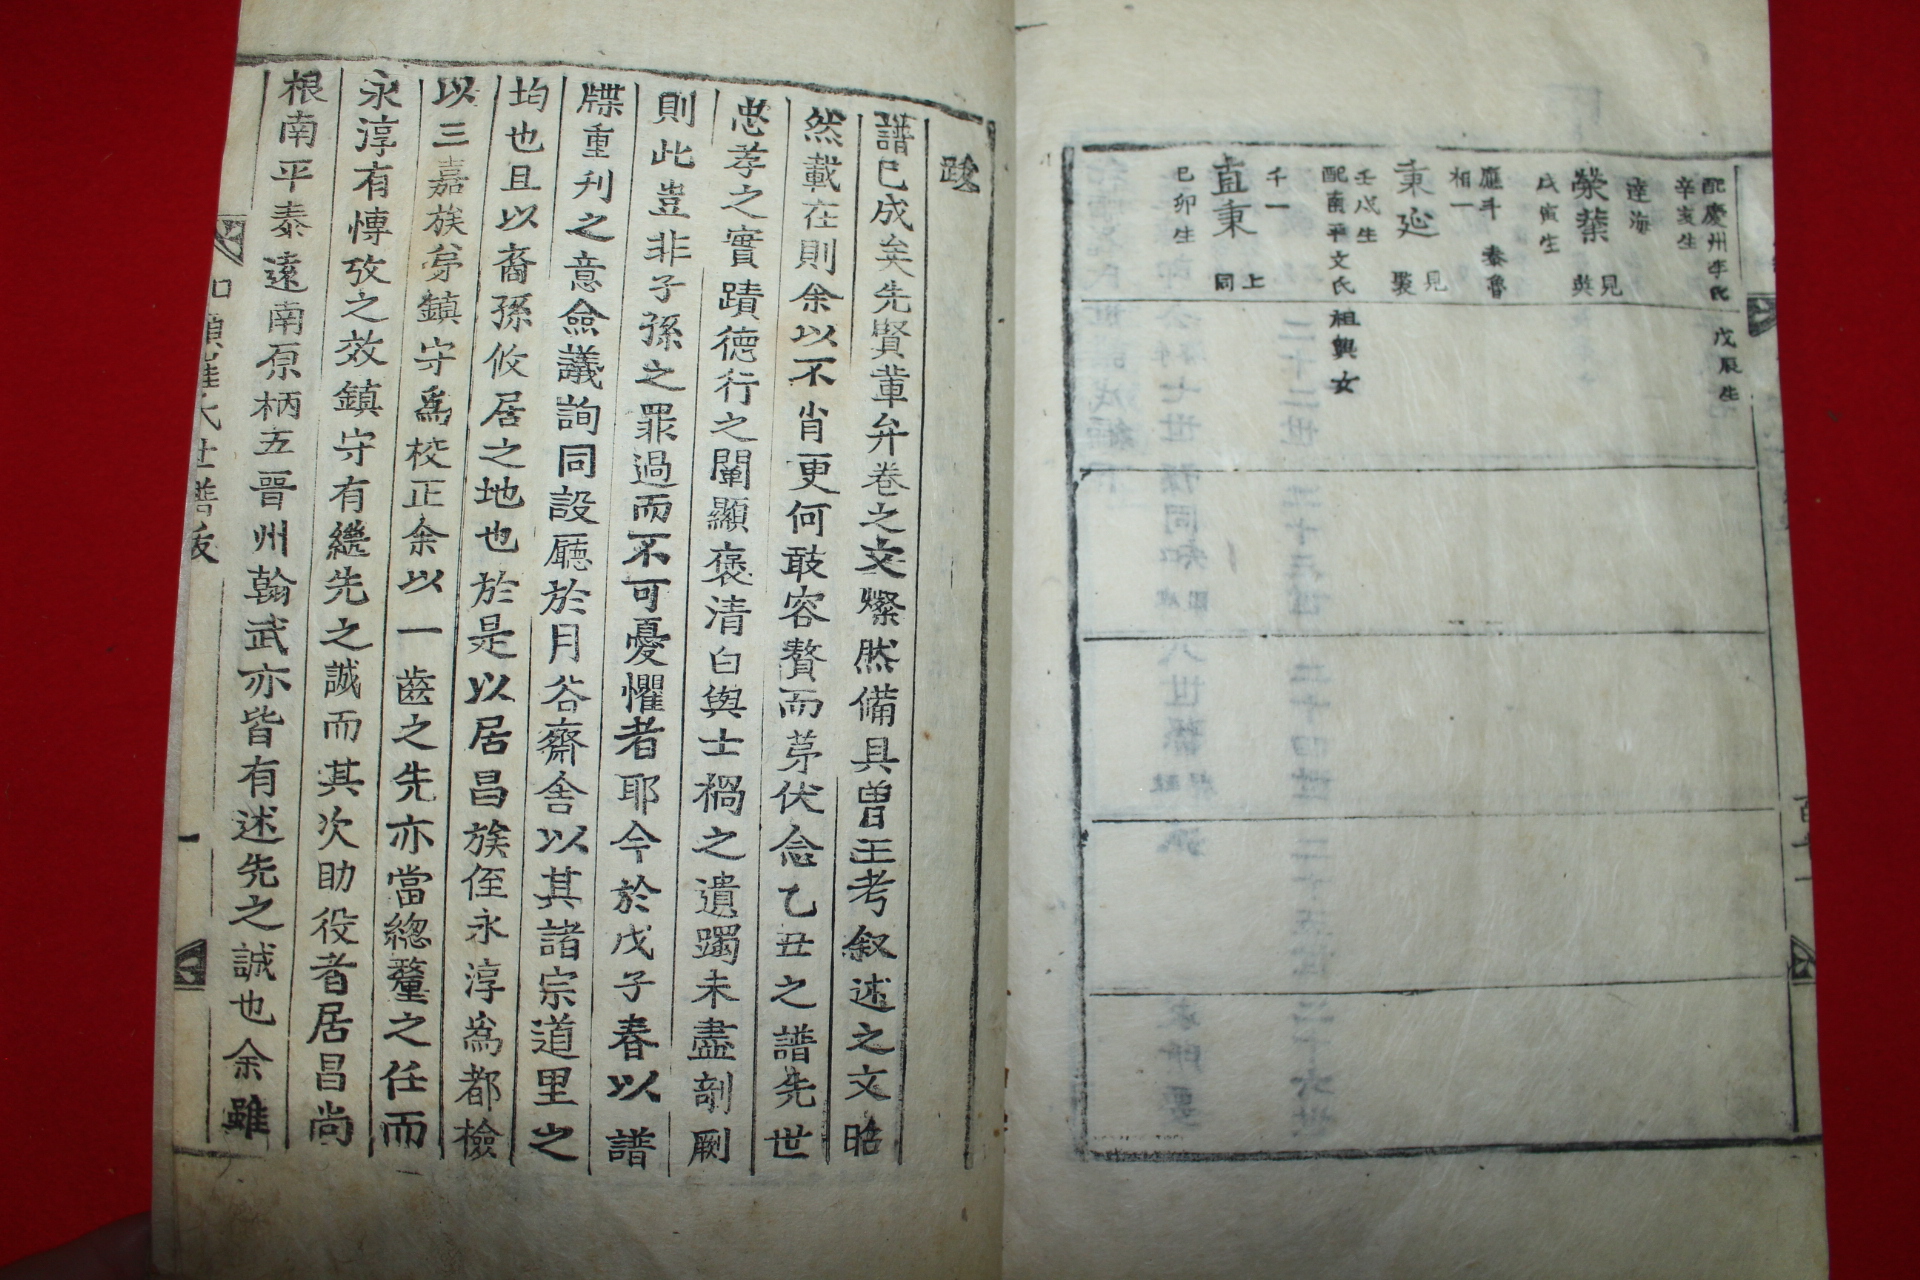 配慶州李氏 戊辰生
辛亥生
達海
榮華 見
英
戊寅生
應斗 泰魯
相一
秉延 見
裂
壬戌生
配南平文氏祖興女
千一
直東 上
同
己卯生
跋
譜已成矣先賢輩弁卷之文燦然備具曾王考叙述之文昭
然載在則余以不肖更何敢容贅而苐伏念乙丑之譜先世
忠孝之實蹟德行之闡顯褒清白與士禍之遺躅未盡剞劂
則此豈非子孫之罪過而不可憂懼者耶今於戊子春以譜
牒重刋之意僉議詢同設廳於月谷齋舍以其諸宗道里之
均也且以裔孫攸居之地也於是以居昌族侄永淳爲都檢
以三嘉族苐鎮守爲校正余以一齒之先亦當緫釐之任而
永淳有慱攷之效鎮守有繼先之誠而其次助役者居昌尚
根南平泰遠南原柄五晋州翰武亦皆有述先之誠也余雖
氏世譜跋
一